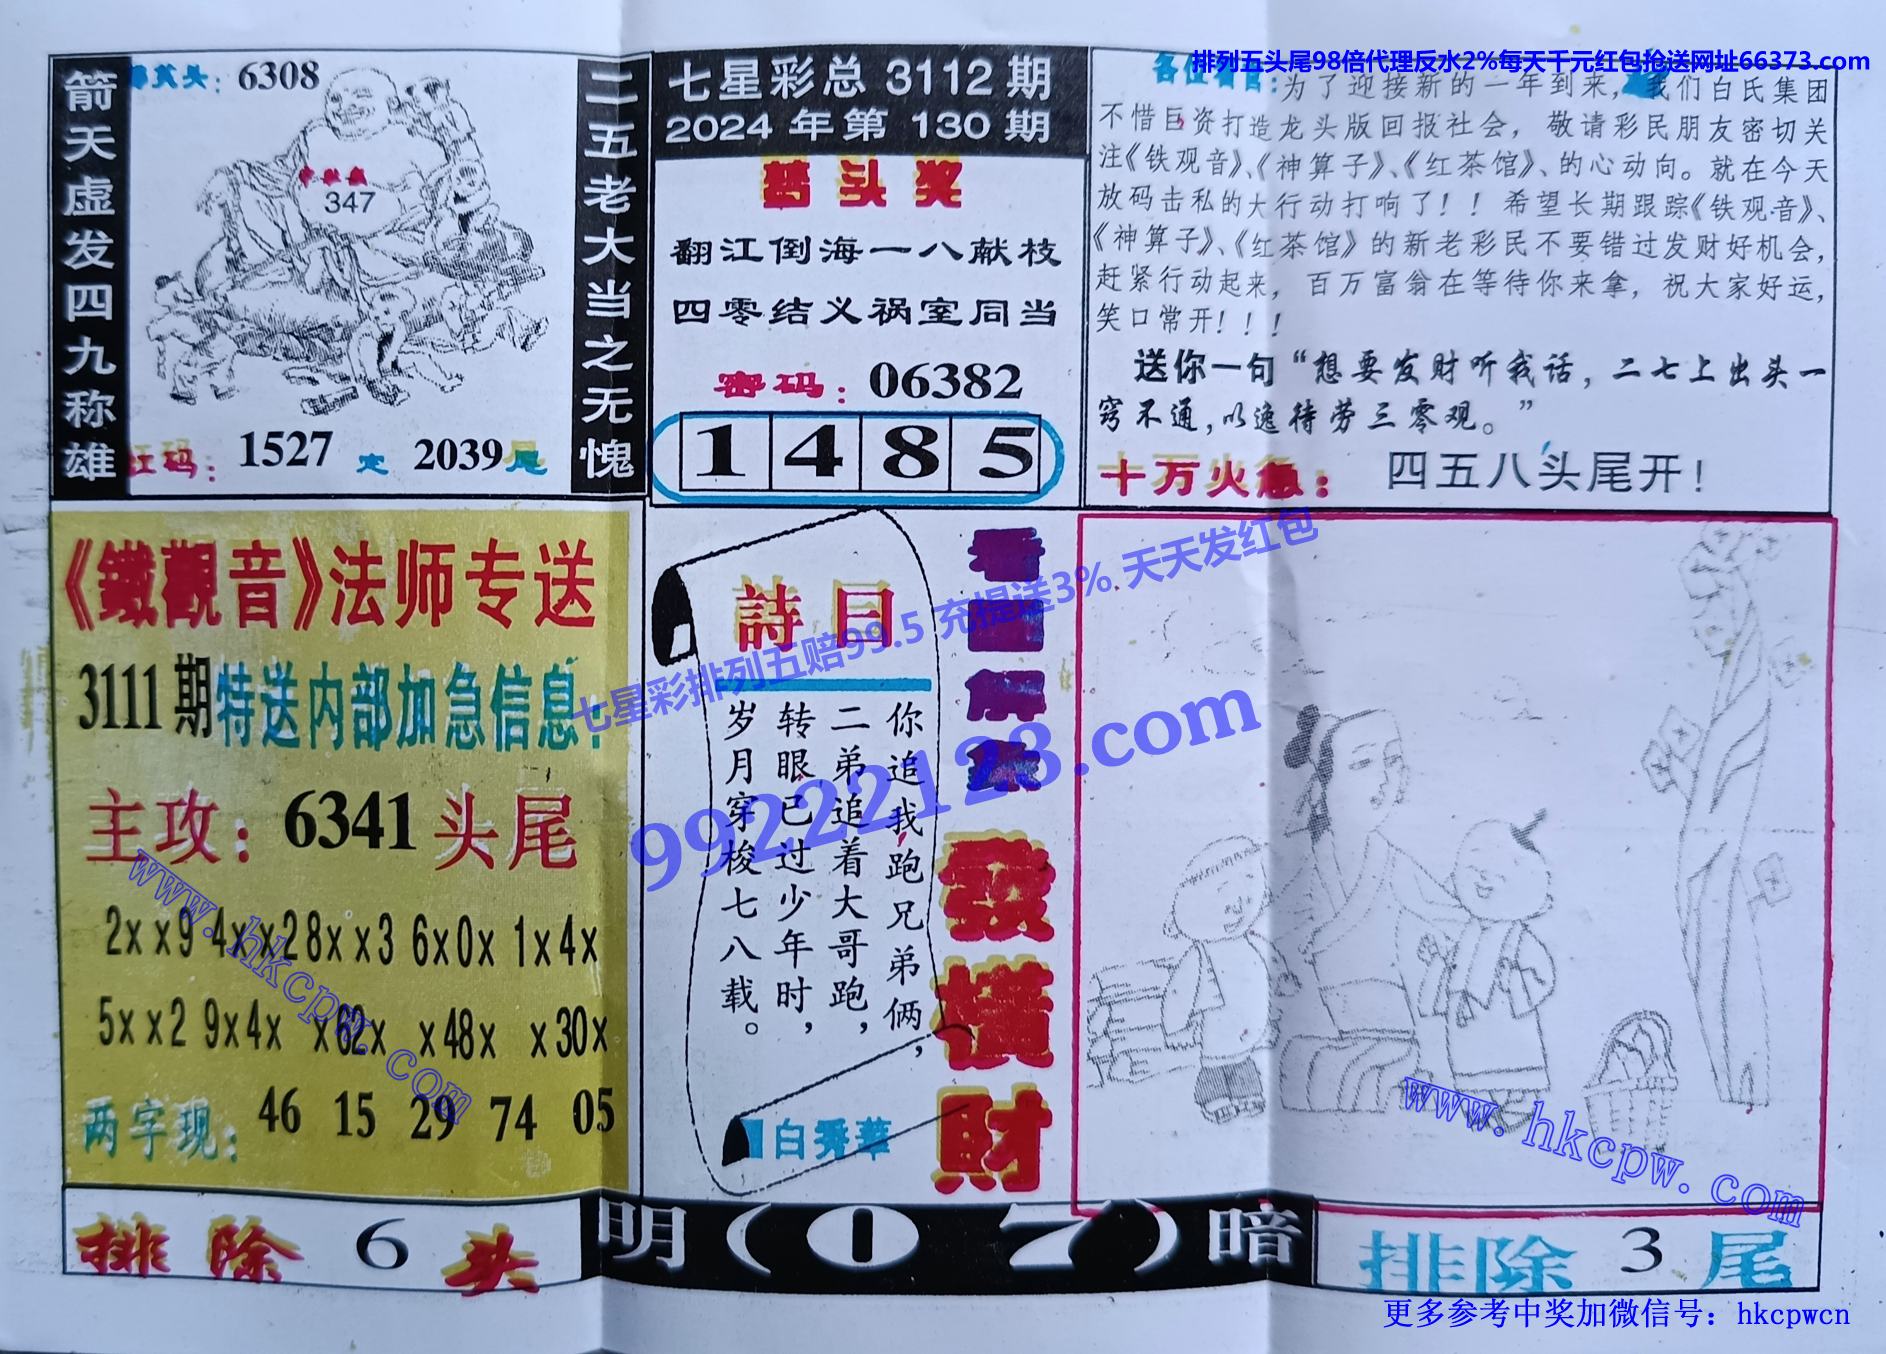 排列五头尾98倍代理反水2%每天千元红包抢送网址66373.com
箭天虚发四九称雄
头：6308
347
红码：1527 定 2039尾
二五老大当之无愧
七星彩总 3112 期
2024 年第 130 期
梦头奖
翻江倒海一八献枝
四零结义祸室同当
密码：06382
1 4 8 5
各位看官：为了迎接新的一年到来，我们白氏集团
不惜巨资打造龙头版回报社会，敬请彩民朋友密切关
注《铁观音》、《神算子》、《红茶馆》、的心动向。就在今天
放码击私的大行动打响了！！希望长期跟踪《铁观音》、
《神算子》、《红茶馆》的新老彩民不要错过发财好机会，
赶紧行动起来，百万富翁在等待你来拿，祝大家好运，
笑口常开！！！
送你一句“想要发财听我话，二七上出头一
窍不通，以逸待劳三零观。”
十万火急：四五八头尾开！
《鐵觀音》法师专送
3111期特送内部加急信息：
主攻：6341头尾
2xx9 4xx2 8xx3 6x0x 1x4x
5xx2 9x4x x62x x48x x30x
两字现：46 15 29 74 05
詩目
你追我跑兄弟俩，
二弟追着大哥跑，
转眼已过少年时，
岁月穿梭七八载。
白秀華
看图解码
發橫財
七星彩排列五赔99.5 充提送3% 天天发红包
99222123.com
www.hkcpw.com
www.hkcpw.com
排除 6 头
明(0 7)暗
排除 3 尾
更多参考中奖加微信号：hkcpwcn